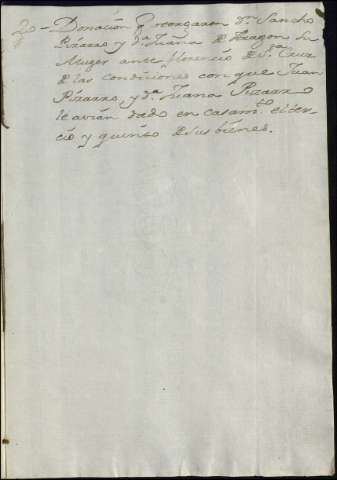 20 - Donacion q.e otorgaron D.n Sancho
Pizarro y d.a Juana de Aragon su
Muger ante florencio de S.ta Cruz
de las condiciones con que Juan
Pizarro, y d.a Juana Pizarro
le avian dado en casam.to el ter-
cio y quinto de sus bienes.